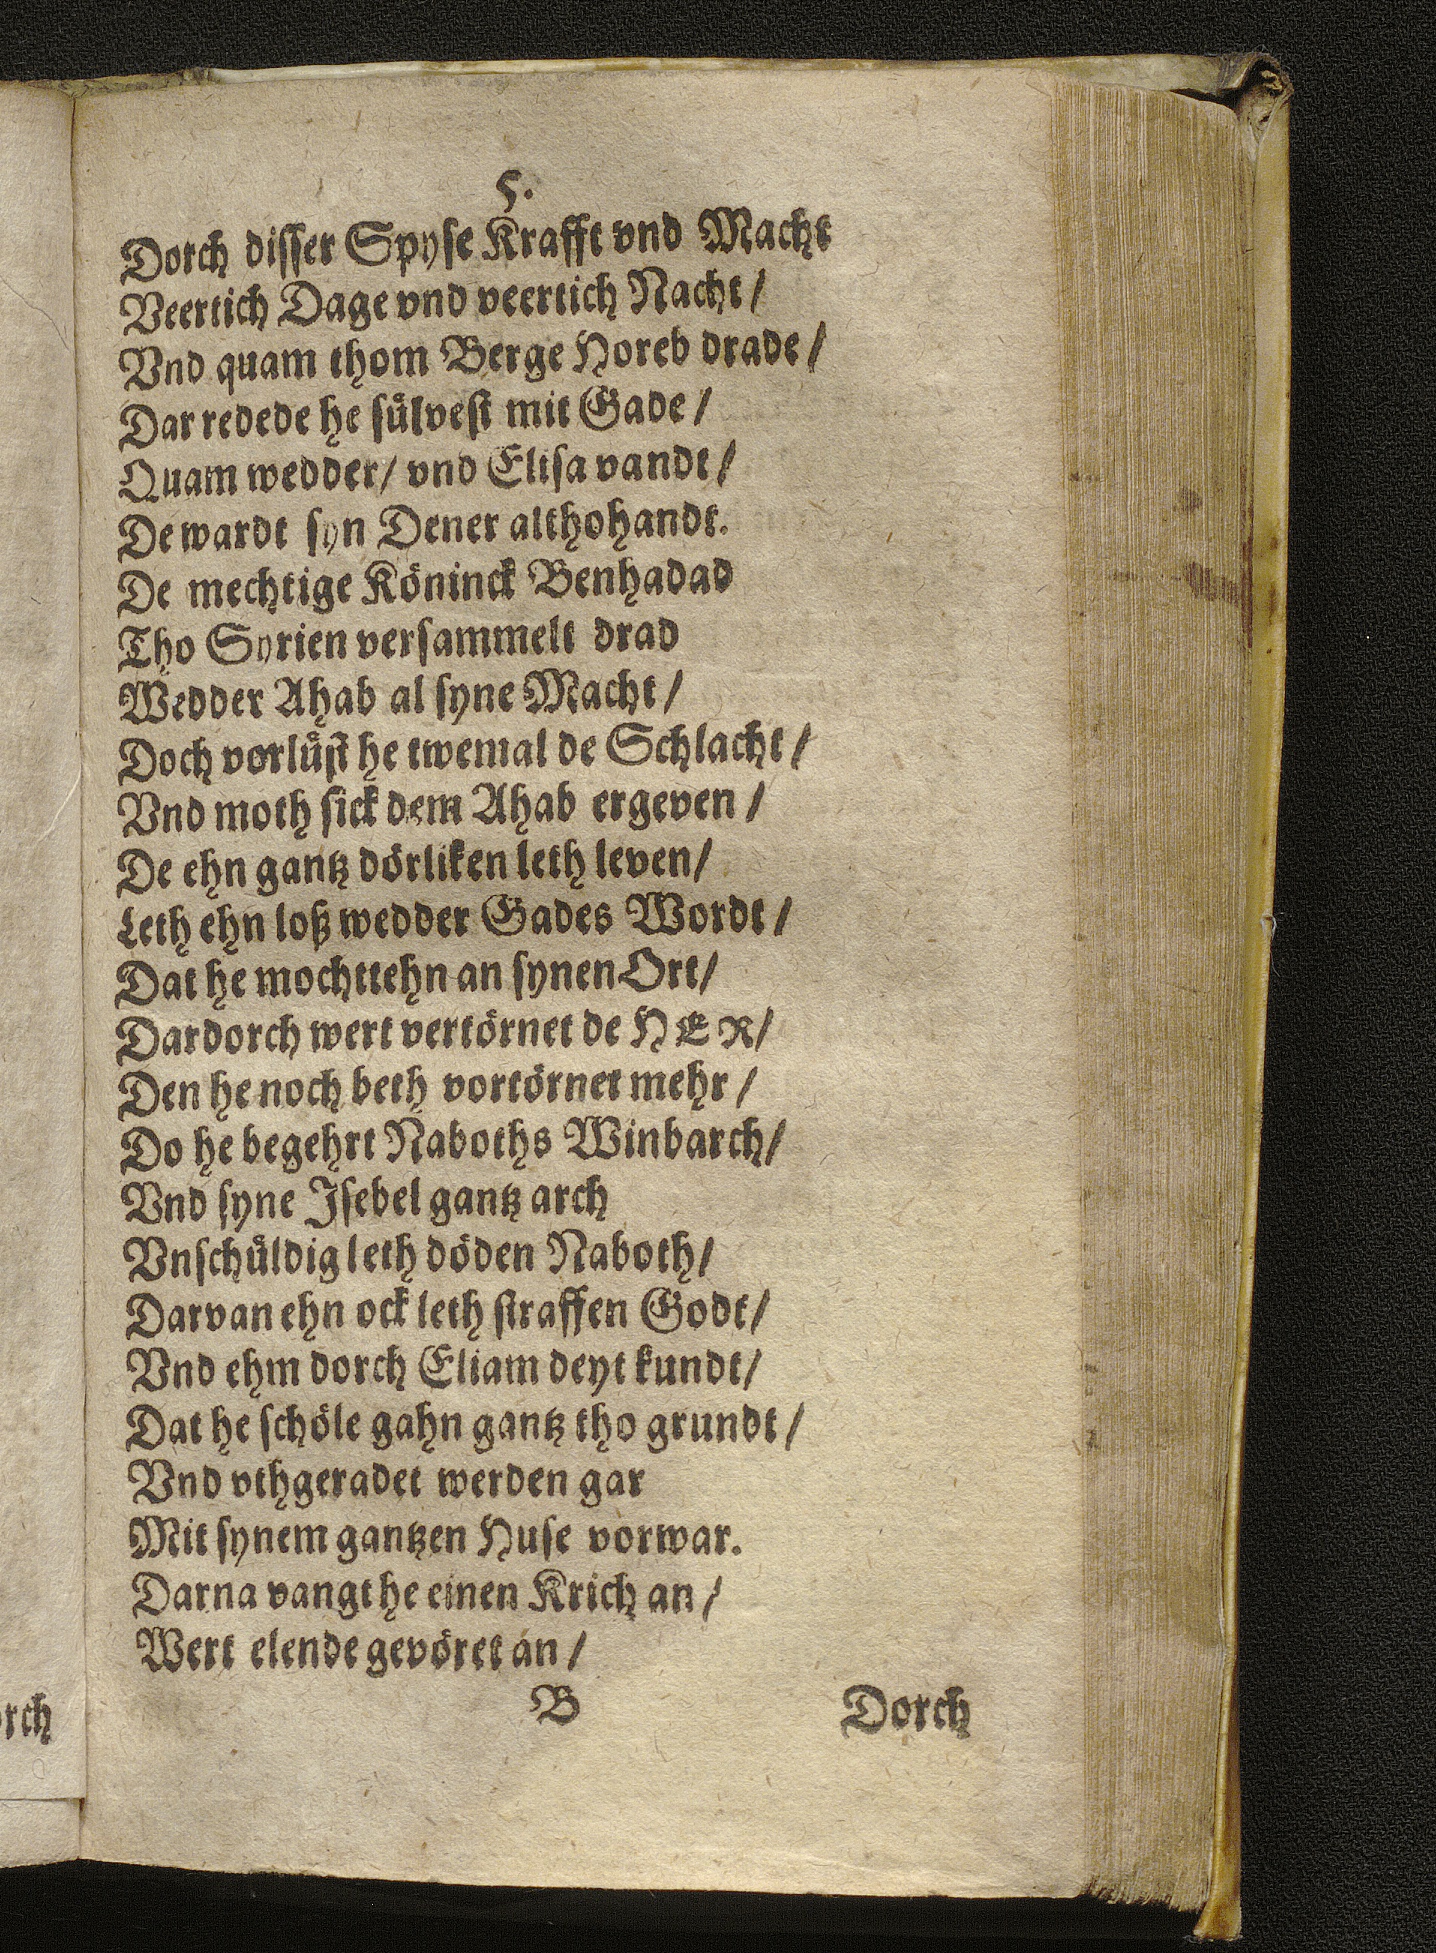 5.
Dorch disser Spyse Krafft vnd Macht
Veertich Dage vnd veertich Nacht /
Vnd quam thom Berge Horeb drade /
Dar redede he sülvest mit Gade /
Quam wedder / vnd Elisa vandt /
De wardt syn Dener althohandt.
De mechtige Köninck Benhadad
Tho Syrien versammelt drad
Wedder Ahab al syne Macht /
Doch vorlüst he twemal de Schlacht /
Vnd moth sick dem Ahab ergeven /
De ehn gantz dörliken leth leven /
Leth ehn loß wedder Gades Wordt /
Dat he mocht tehn an synen Ort /
Dardorch wert vertörnet de HER /
Den he noch beth vortörnet mehr /
Do he begehrt Naboths Winbarch /
Vnd syne Isebel gantz arch
Vnschüldig leth döden Naboth /
Darvan ehn ock leth straffen Godt /
Vnd ehm dorch Eliam deyt kundt /
Dat he schöle gahn gantz tho grundt /
Vnd vthgeradet werden gar
Mit synem gantzen Huse vorwar.
Darna vangt he einen Krich an /
Wert elende gevöret an /
B Dorch
orch